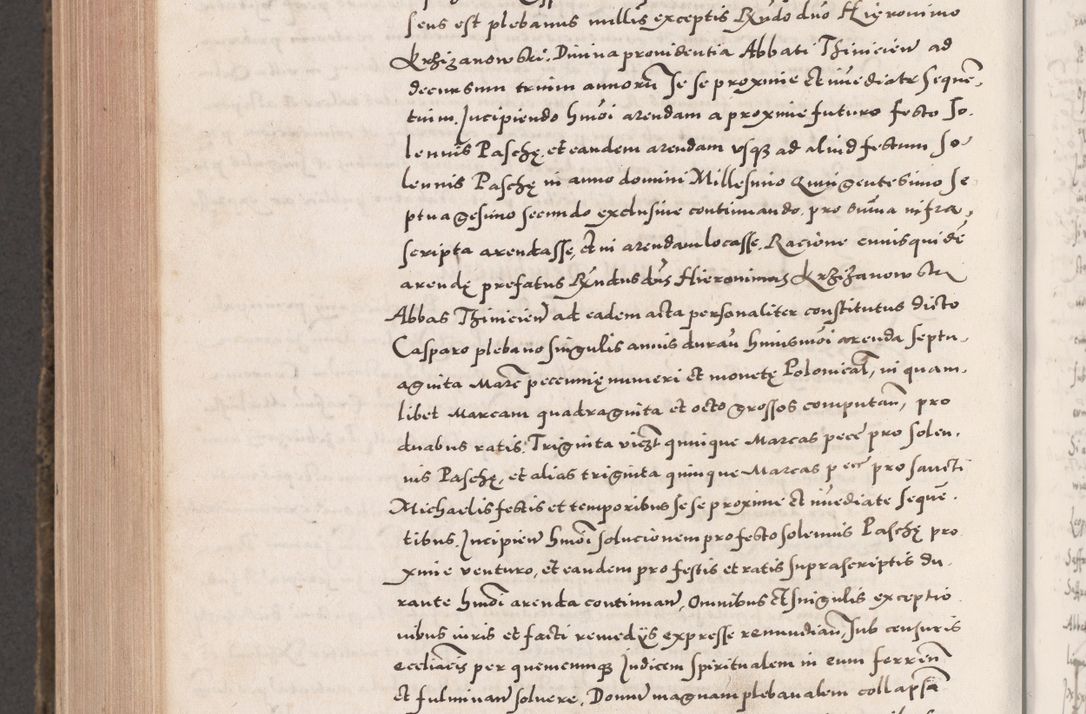 sens est plebanus nullis exceptis Rndo dno Hieronimo
Krzizanowski. Divina providentia Abbati Thinicien ad
decursum trium annorū se se proxime et imediate sequē,
tium. Incipiendo hmōi arendam a proxime futuro festo So,
lennis Paschę, et eandem arendam usq ad aliud festum so,
lennis Paschę in anno domini Millesimo Quingentesimo se
ptuagesimo secundo exclusive continuando, pro suma infra,
scripta arendasse, et in arendam locasse. Racione cuius quidē
arendę prefatus Rndus dns Hieronimus Krzizanowski
Abbas Thinicien ad eadem acta personaliter constitutus dicto
Casparo plebano singulis annis durañ huiusmōi arenda septu,
aginta Marc pecunię numeri et monetę Polonical, in quam,
libet Marcam quadraginta et octo grossos computañ, pro
duabus ratis. Triginta viczt quinque Marcas pecc pro solen,
nis Paschę, et alias triginta quinque Marcas pecc pro sancti
Michaelis festis et temporibus se se proxime et imediate sequē,
tibus. Incipien hmōi solucionem pro festo solennis Paschę pro
xime venturo, et eandem pro festis et ratis suprascriptis du,
rante hmōi arenda continuañ, Omnibus et singulis exceptio
nibus iuris et facti remedijs expresse renunciañ, sub censuris
ecclīaris per quemcumq Iudicem spiritualem in eum ferreñ
et fulminañ solvere. Domū magnam plebanalem collapsā